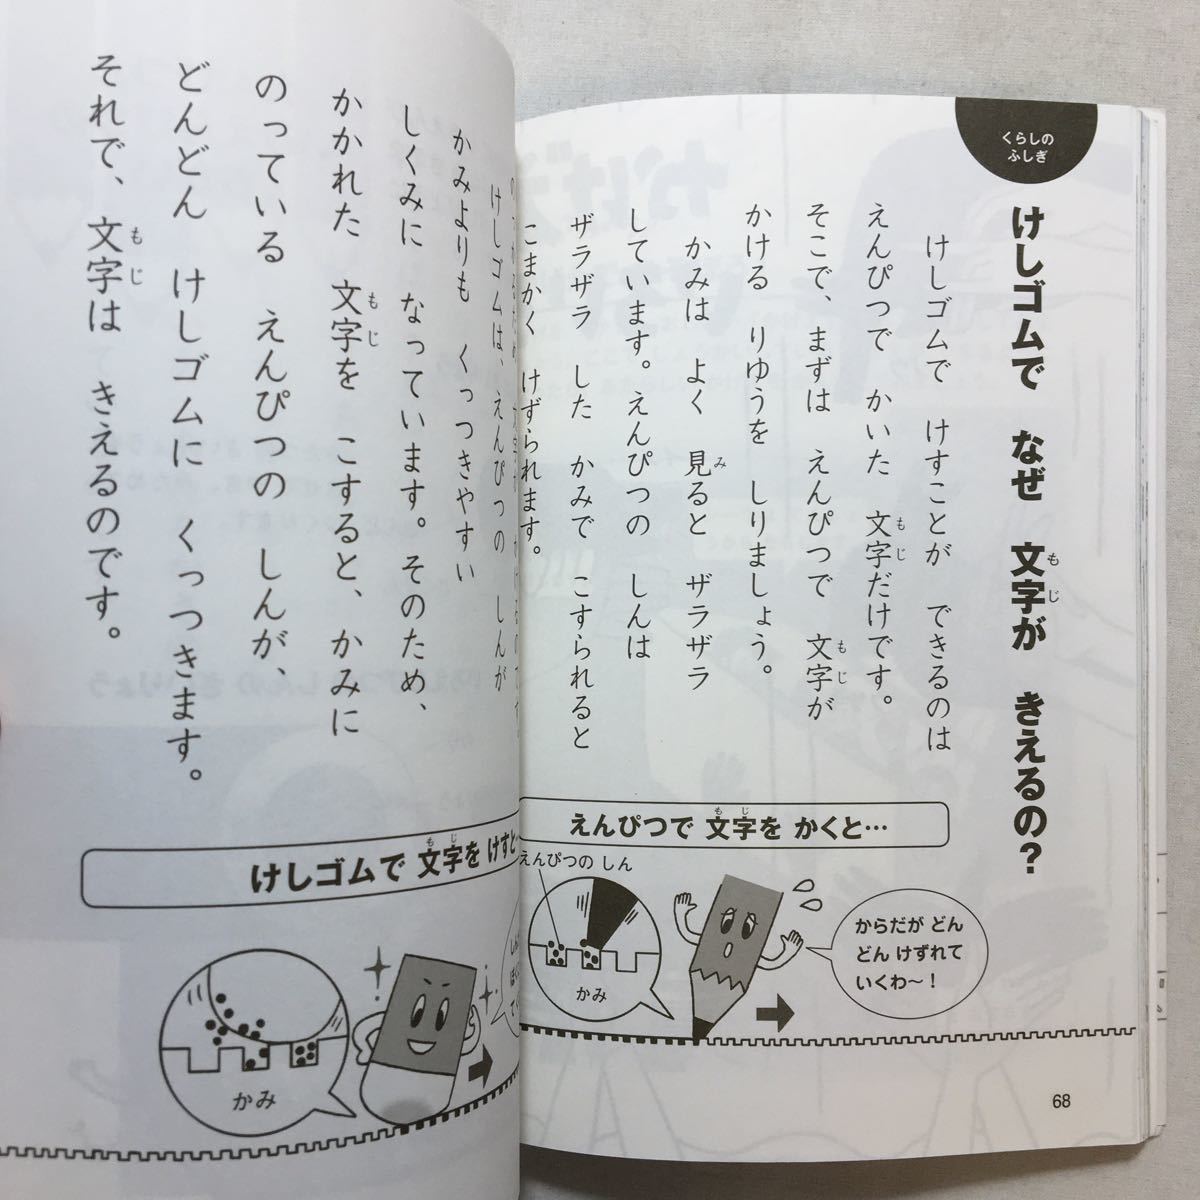 くらしの
ふしぎ
けしゴムで なぜ 文字が きえるの？
けしゴムで けすことが できるのは
えんぴつで かいた 文字だけです。
そこで、まずは えんぴつで 文字が
かける りゆうを しりましょう。
かみは よく 見ると ザラザラ
しています。えんぴつの しんは
ザラザラ した かみで こすられると
こまかく けずられます。
けしゴムは、えんぴつの しんが
かみよりも くっつきやすい
しくみに なっています。そのため、
かかれた 文字を こすると、かみに
のっている えんぴつの しんが、
どんどん けしゴムに くっつきます。
それで、文字は きえるのです。
えんぴつで 文字を かくと…
えんぴつの しん
かみ
からだが どん
どん けずれて
いくわ〜！
けしゴムで 文字を けすと
かみ
68